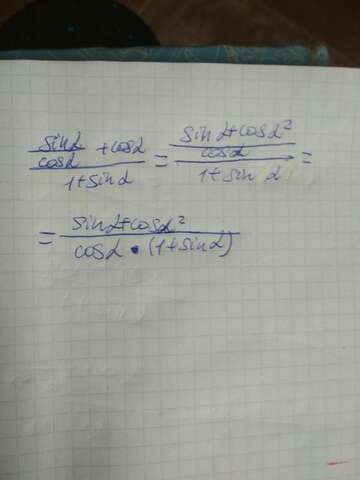 (sinα/cosα + cosα)/(1+sinα) = ((sinα+cosα²)/cosα)/(1+sinα) =
= (sinα+cosα²)/(cosα • (1+sinα))